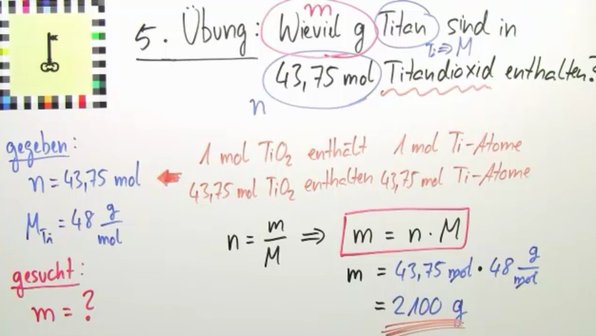 5. Übung: Wieviel g Titan sind in
m
Ti ⇒ M
43,75 mol Titandioxid enthalten?
n
gegeben:
n = 43,75 mol
M_Ti = 48 g/mol
gesucht:
m = ?
1 mol TiO₂ enthält 1 mol Ti-Atome
43,75 mol TiO₂ enthalten 43,75 mol Ti-Atome
n = m/M ⇒ m = n · M
m = 43,75 mol · 48 g/mol
= 2100 g